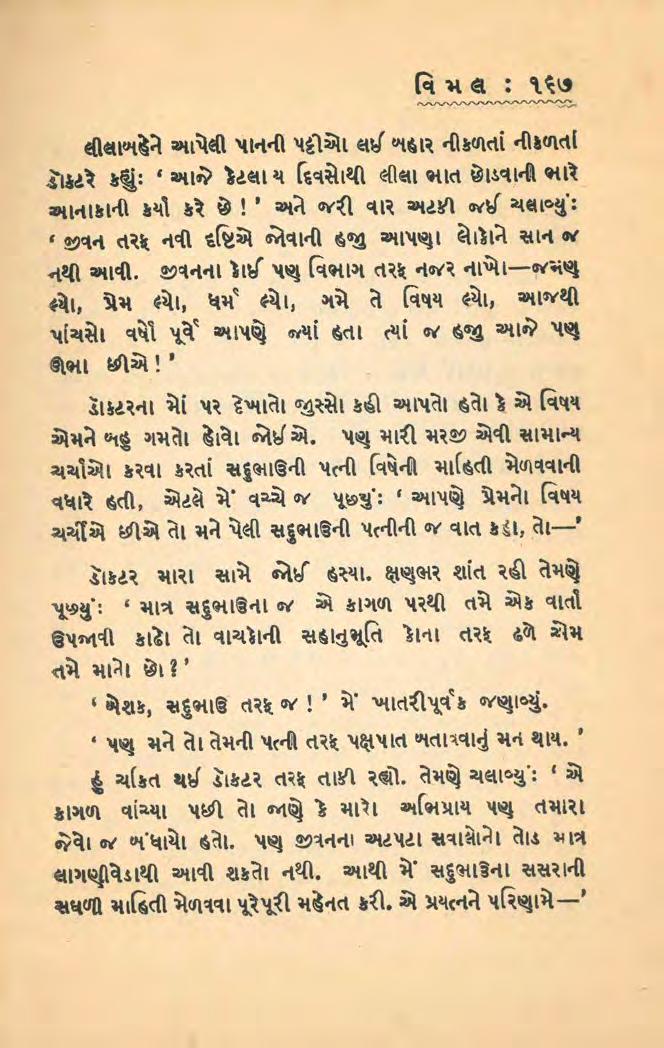 વિ મ લ : ૧૬૭
લીલાબહેને આપેલી પાનની પટ્ટીઓ લઈ બહાર નીકળતાં નીકળતાં
ડૉકટરે કહ્યું: ‘ આજે કેટલા ય દિવસોથી લીલા ભાત છોડવાની ભારે
આનાકાની કર્યા કરે છે ! ’ અને જરી વાર અટકી જઈ ચલાવ્યું:
‘ જીવન તરફ નવી દૃષ્ટિએ જોવાની હજી આપણા લોકોને સાન જ
નથી આવી. જીવનના કોઈ પણ વિભાગ તરફ નજર નાખો—જમણ
લ્યો, પ્રેમ લ્યો, ધર્મ લ્યો, ગમે તે વિષય લ્યો, આજથી
પાંચસો વર્ષો પૂર્વે આપણે જ્યાં હતા ત્યાં જ હજી આજે પણ
ઊભા છીએ ! ’
ડૉકટરના મોં પર દેખાતો જુસ્સો કહી આપતો હતો કે એ વિષય
એમને બહુ ગમતો હોવો જોઈએ. પણ મારી મરજી એવી સામાન્ય
ચર્ચાઓ કરવા કરતાં સદુભાઉની પત્ની વિષેની માહિતી મેળવવાની
વધારે હતી, એટલે મેં વચ્ચે જ પૂછ્યું: ‘ આપણે પ્રેમનો વિષય
ચર્ચીએ છીએ તો મને પેલી સદુભાઉની પત્નીની જ વાત કહો, તો—’
ડૉકટર મારા સામે જોઈ હસ્યા. ક્ષણભર શાંત રહી તેમણે
પૂછ્યું: ‘ માત્ર સદુભાઉના જ એ કાગળ પરથી તમે એક વાર્તા
ઉપજાવી કાઢો તો વાચકોની સહાનુભૂતિ કોના તરફ ઢળે એમ
તમે માનો છો ? ’
‘ બેશક, સદુભાઉ તરફ જ ! ’ મેં ખાતરીપૂર્વક જણાવ્યું.
‘ પણ મને તો તેમની પત્ની તરફ પક્ષપાત બતાવવાનું મન થાય. ’
હું ચકિત થઈ ડૉકટર તરફ તાકી રહ્યો. તેમણે ચલાવ્યું: ‘ એ
કાગળ વાંચ્યા પછી તો જાણે કે મારો અભિપ્રાય પણ તમારા
જેવો જ બંધાયો હતો. પણ જીવનના અટપટા સવાલોનો તોડ માત્ર
લાગણીવેડાથી આવી શકતો નથી. આથી મેં સદુભાઉના સસરાની
સઘળી માહિતી મેળવવા પૂરેપૂરી મહેનત કરી. એ પ્રયત્નને પરિણામે—’